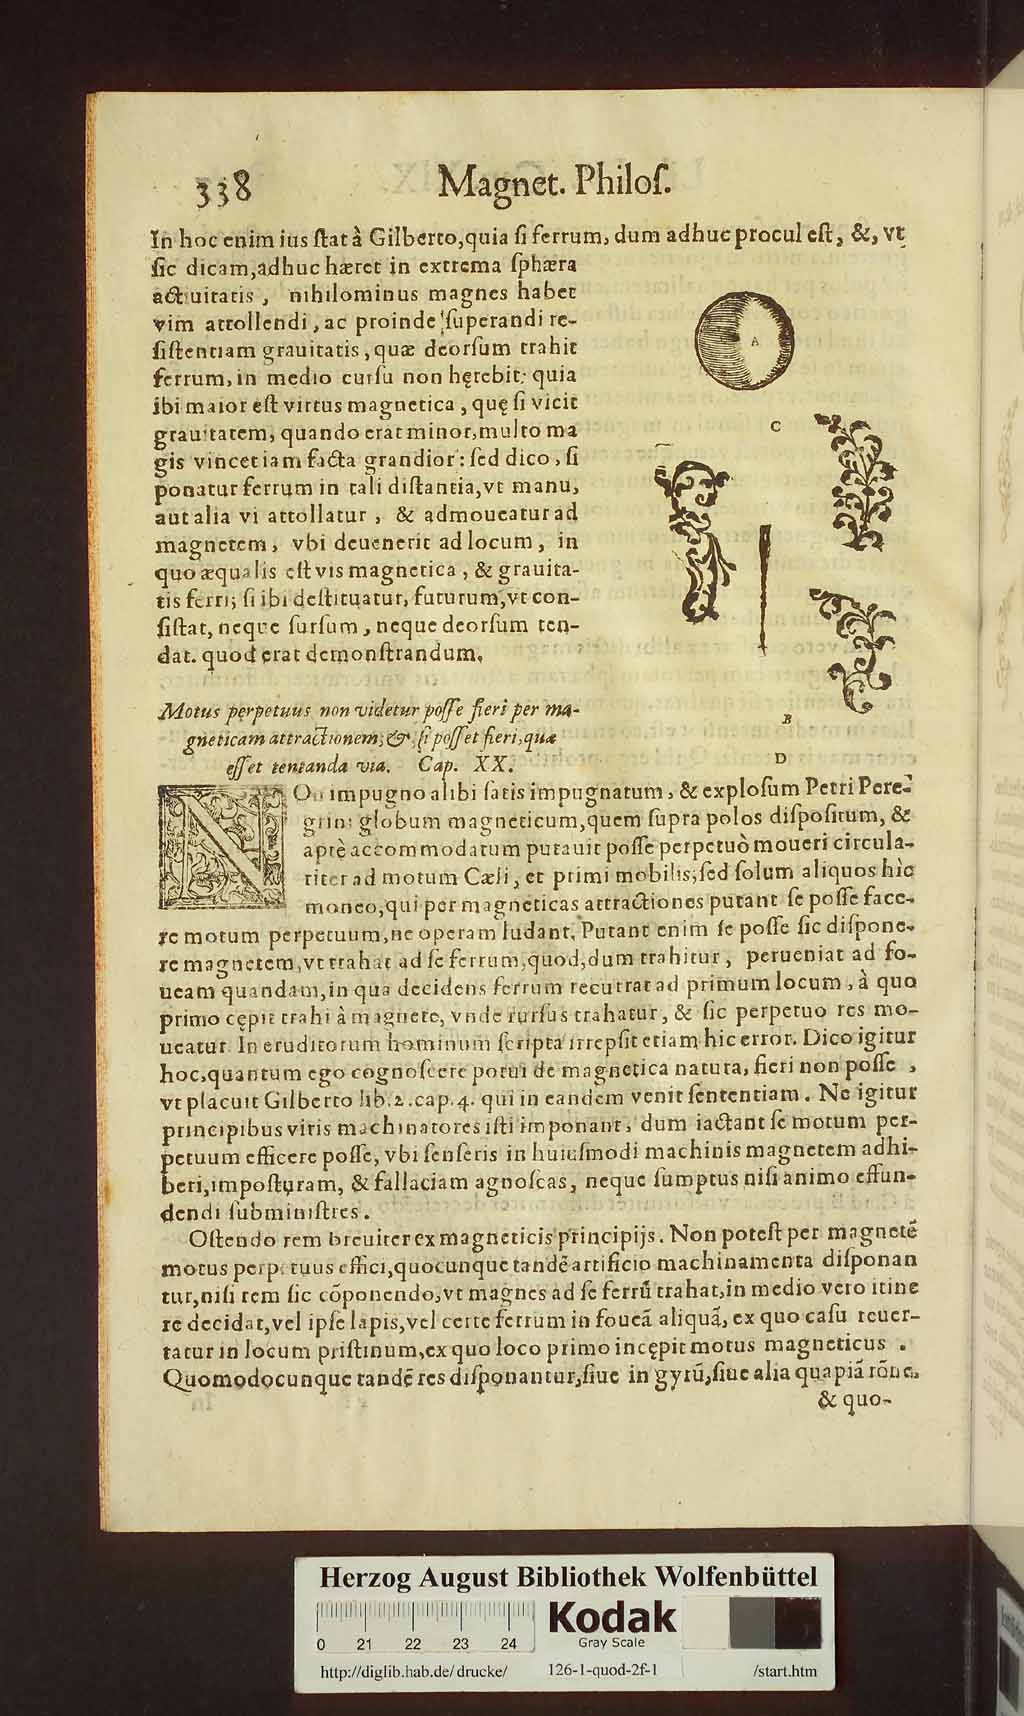 338 Magnet. Philoſ.
In hoc enim ius ſtat à Gilberto, quia ſi ferrum, dum adhuc procul eſt, &, vt
ſic dicam, adhuc hæret in extrema ſphæra
act uitatis, nihilominus magnes habet
vim attollendi, ac proinde ſuperandi re-
ſiſtentiam grauitatis, quæ deorſum trahit
ferrum, in medio curſu non hęrebit: quia
ibi maior eſt virtus magnetica, quę ſi vicit
grauitatem, quando erat minor, multo ma
gis vincet iam facta grandior: ſed dico, ſi
ponatur ferrum in tali diſtantia, vt manu,
aut alia vi attollatur, & admoueatur ad
magnetem, vbi deuenerit ad locum, in
quo æqualis eſt vis magnetica, & grauita-
tis ferri; ſi ibi deſtituatur, futurum, vt con-
ſiſtat, neque ſurſum, neque deorſum ten-
dat. quod erat demonſtrandum.
A
C
B
D
Motus perpetuus non videtur poſſe fieri per ma-
gneticam attractionem; & ſi poſſet fieri, quæ
eſſet tentanda via. Cap. XX.
NOn impugno alibi ſatis impugnatum, & exploſum Petri Pere-
grini globum magneticum, quem ſupra polos diſpoſitum, &
aptè accommodatum putauit poſſe perpetuò moueri circula-
riter ad motum Cæli, et primi mobilis; ſed ſolum aliquos hìc
moneo, qui per magneticas attractiones putant ſe poſſe face-
re motum perpetuum, ne operam ludant. Putant enim ſe poſſe ſic diſpone-
re magnetem, vt trahat ad ſe ferrum, quod, dum trahitur, perueniat ad fo-
ueam quandam, in qua decidens ferrum recurrat ad primum locum, à quo
primo cępit trahi à magnete, vnde rurſus trahatur, & ſic perpetuo res mo-
ueatur. In eruditorum hominum ſcripta irrepſit etiam hic error. Dico igitur
hoc, quantum ego cognoſcere potui de magnetica natura, fieri non poſſe,
vt placuit Gilberto lib. 2. cap. 4. qui in eandem venit ſententiam. Ne igitur
principibus viris machinatores iſti imponant, dum iactant ſe motum per-
petuum efficere poſſe, vbi ſenſeris in huiuſmodi machinis magnetem adhi-
beri, impoſturam, & fallaciam agnoſcas, neque ſumptus niſi animo effun-
dendi ſubminiſtres.
Oſtendo rem breuiter ex magneticis principijs. Non poteſt per magnetẽ
motus perpetuus effici, quocunque tandẽ artificio machinamenta diſponan
tur, niſi rem ſic cõponendo, vt magnes ad ſe ferrũ trahat, in medio vero itine
re decidat, vel ipſe lapis, vel certe ferrum in foueã aliquã, ex quo caſu reuer-
tatur in locum priſtinum, ex quo loco primo incępit motus magneticus.
Quomodocunque tandẽ res diſponantur, ſiue in gyrũ, ſiue alia quapiã rõne,
& quo-
Herzog August Bibliothek Wolfenbüttel
0 21 22 23 24
Kodak
Gray Scale
http://diglib.hab.de/drucke/ 126-1-quod-2f-1 /start.htm